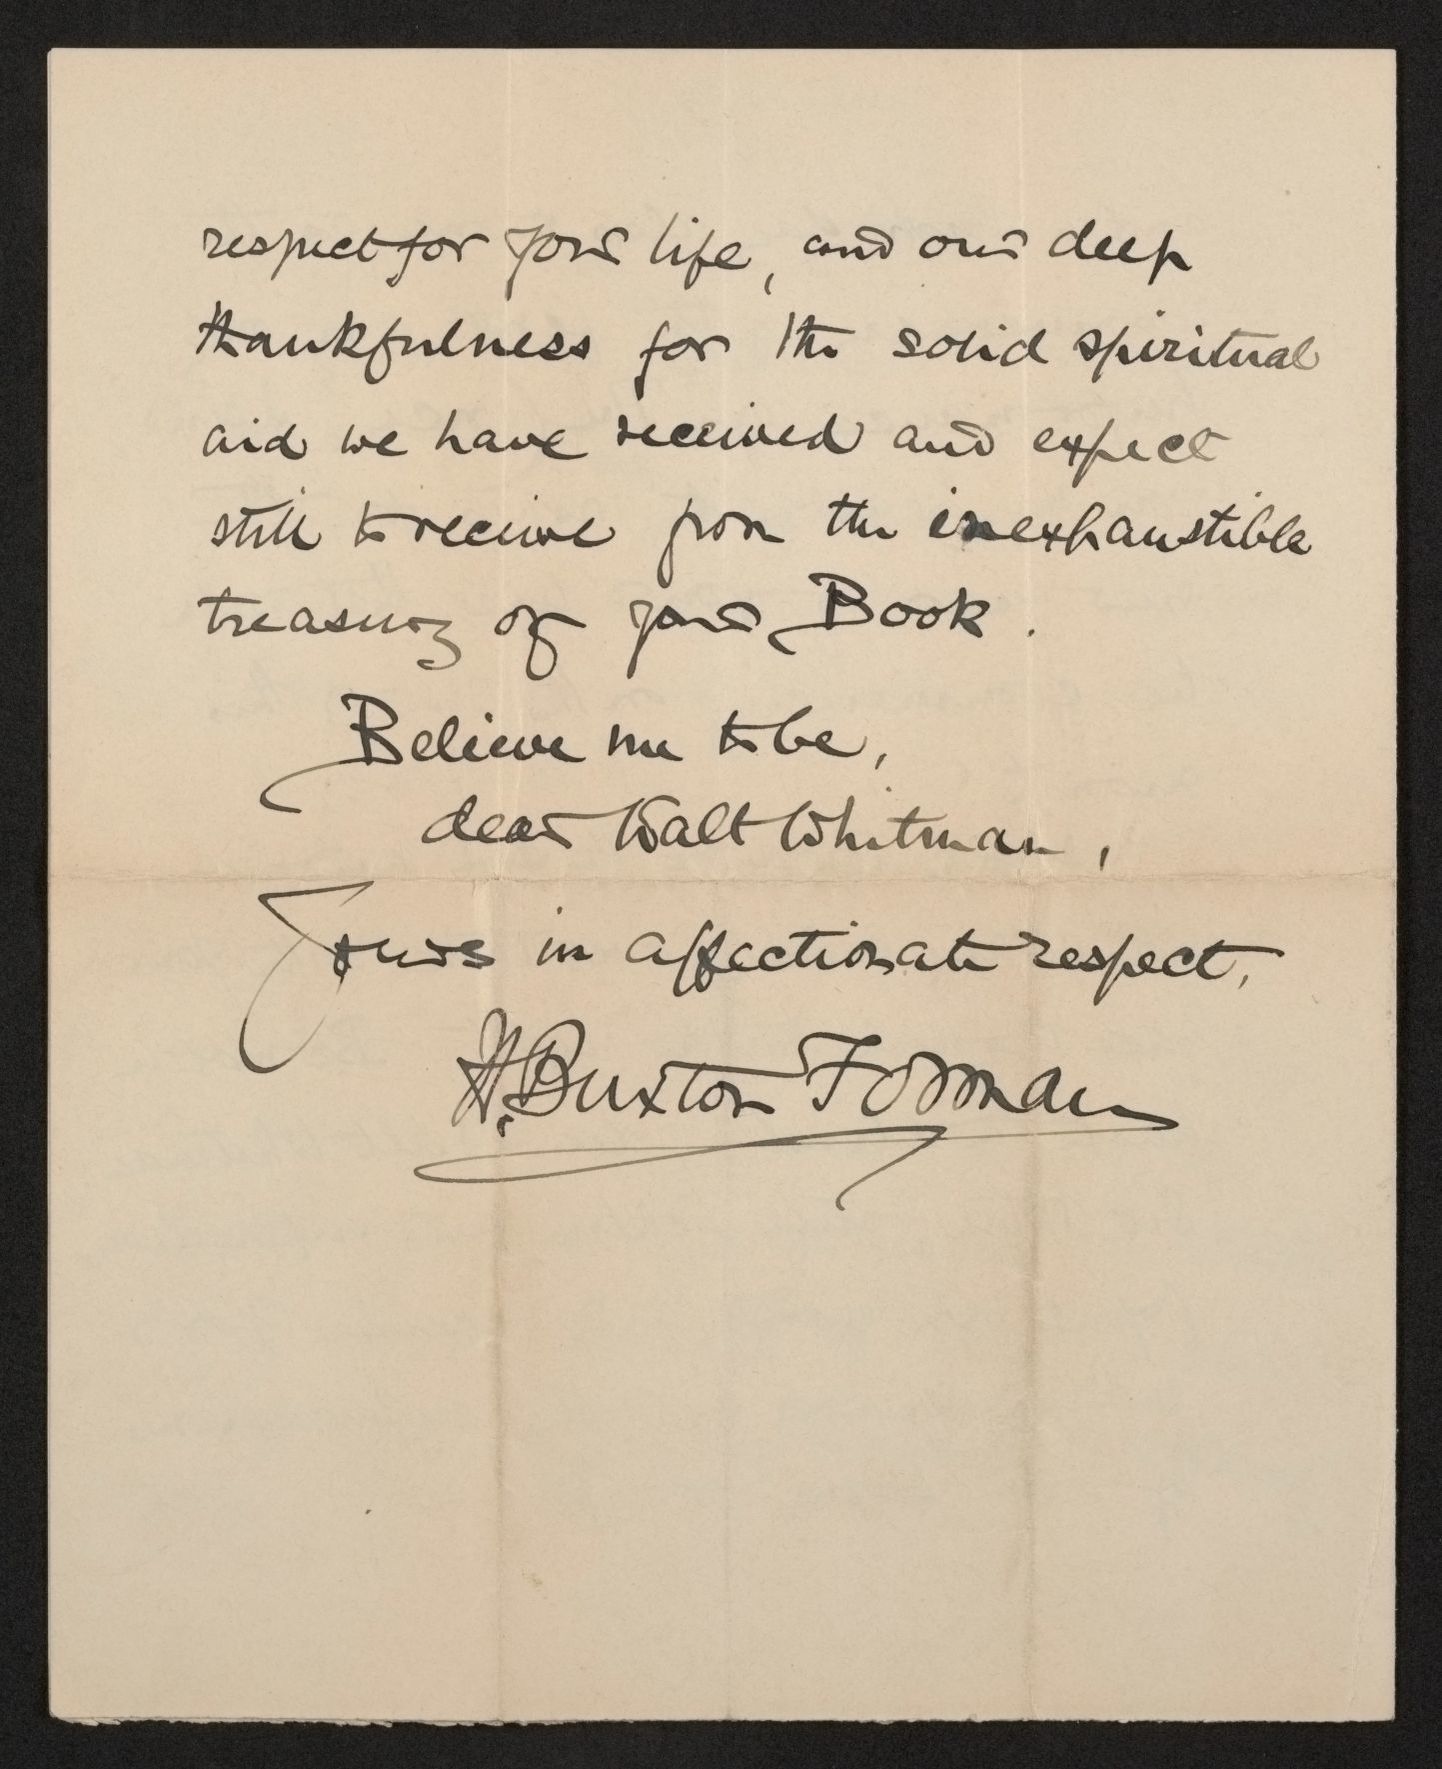 respect for your life, and our deep
thankfulness for the solid spiritual
aid we have received and expect
still to receive from the inexhaustible
treasury of your Book.
Believe me to be,
dear Walt Whitman,
Yours in affectionate respect,
H. Buxton Forman